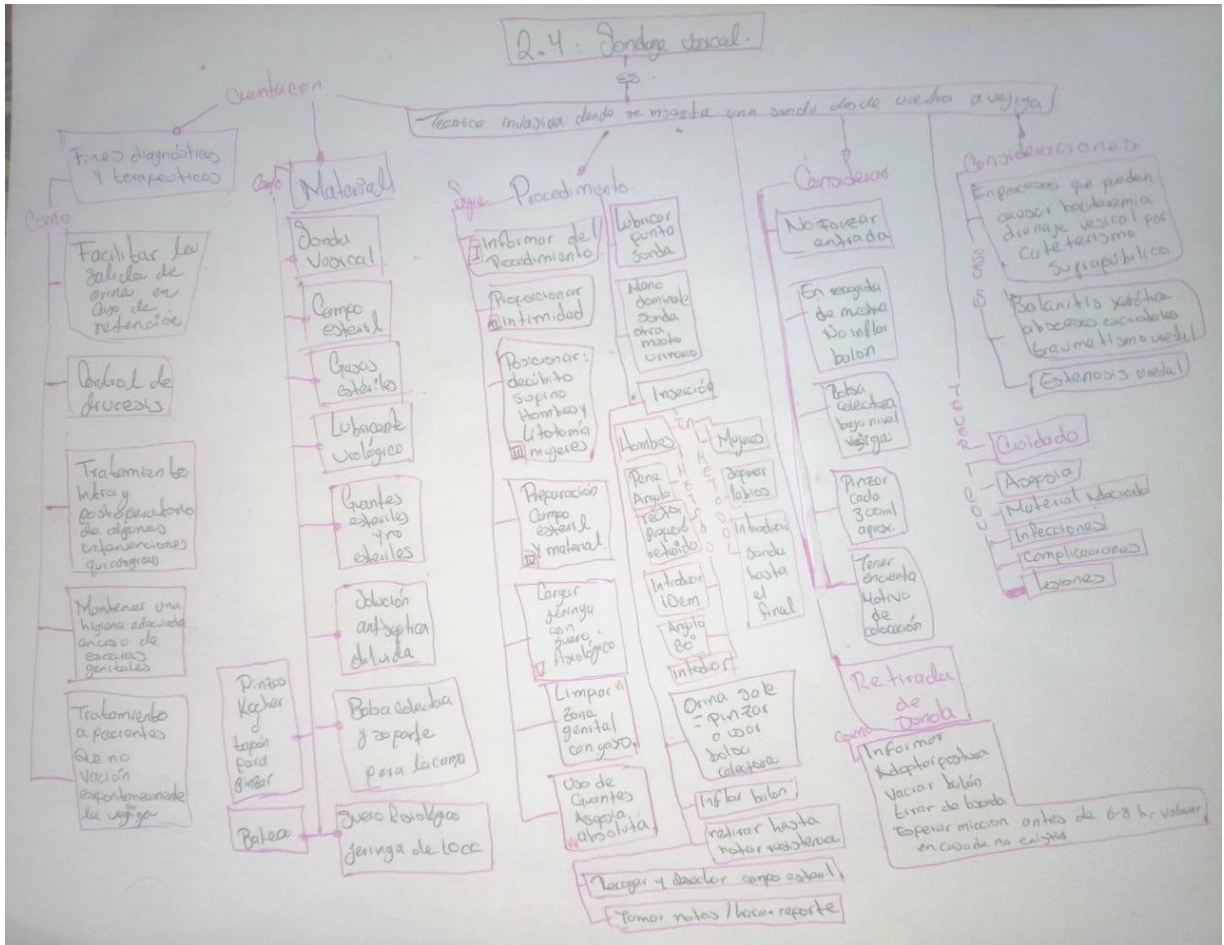 2.4. Sondaje vesical.
es
Tecnica invasiva donde se inserta una sonda desde uretra a vejiga
Cuenta con
Fines diagnósticos
y terapeuticos
Como
Facilitar la
salida de
orina en
caso de
retención
Control de
diuresis
Tratamiento
intra y
postoperatorio
de algunas
intervenciones
quirúrgicas
Mantener una
higiene adecuada
en caso de
escaras
genitales
Tratamiento
a pacientes
que no
vacian
espontaneamente
la vejiga
Como
Material
Sonda
vesical
Campo
esteril
Gasas
estériles
Lubricante
urológico
Guantes
esteriles
y no
esteriles
Solución
antiseptica
diluida
Bolsa colectora
y soporte
para la cama
Suero fisiológico
jeringa de 10cc
Pinzas
Kocher
y
tapón
para
pinzar
Batea
Sigue
Procedimiento
I Informar del
Procedimiento
II Proporcionar
intimidad
Posicionar:
decúbito
supino
Hombres y
Litotomía
III mujeres
Preparación
Campo
esteril
y material.
IV
Cargar
jeringa
con
suero
fisiológico
V
Limpiar VI
zona
genital
con gasa
Uso de
Guantes
Asepsia
absoluta
Lubricar
punta
sonda
Mano
dominate
sonda
otra
meato
urinario
Inserción
En
Hombres
Pene
Angulo
recto
prepucio
retraido
Introducir
10cm
Angulo
60°
introducir
Mujeres
Separar
labios
Introducir
sonda
hasta
el
final
Orina sale
= pinzar
o usar
bolsa
colectora
Inflar balon
retirar hasta
notar resistencia
Recoger y desechar campo esteril
Tomar notas / hacer reporte
Considerar
No forzar
entrada
En recogida
de mestra
No inflar
balon
Bolsa
colectora
bajo nivel
vejiga
Pinzar
cada
300ml
aprox.
Tener
encuenta
Motivo
de
colocación
Retirada
de
Sonda
como
Informar
Adoptar postura
Vaciar balón
tirar de sonda
Esperar miccion antes de 6-8 h, valorar
en caso de no existir
Consideraciones
En procesos que pueden
causar bacteremia
drenaje vesical por
cateterismo
suprapúbico
Balanitis xerótica
abscesos escrotales
traumatismo uretral
Estenosis uretral
TENER
Cuidado
Asepsia
Material Adecuado
Infecciones
Complicaciones
Lesiones